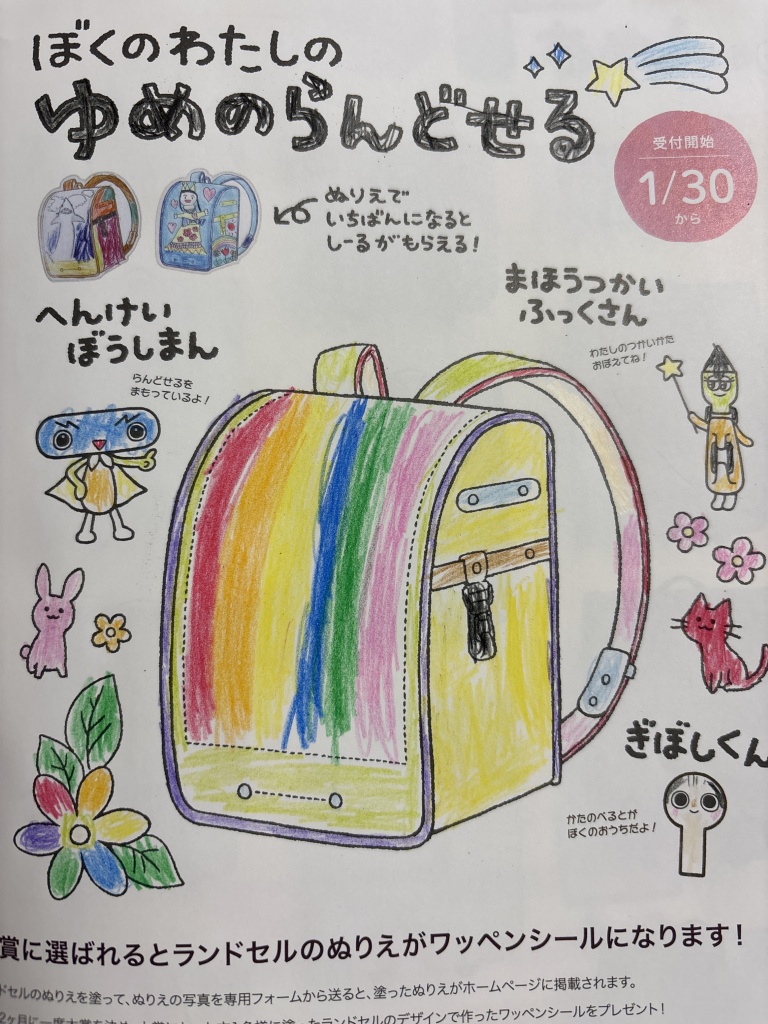 ぼくのわたしの
ゆめのらんどせる
受付開始
1/30
から
ぬりえで
いちばんになると
しーるがもらえる！
へんけい
ぼうしまん
らんどせるを
まもっているよ！
まほうつかい
ふっくさん
わたしのつかいかた
おぼえてね！
ぎぼしくん
かたのべるとが
ぼくのおうちだよ！
賞に選ばれるとランドセルのぬりえがワッペンシールになります！
ドセルのぬりえを塗って、ぬりえの写真を専用フォームから送ると、塗ったぬりえがホームページに掲載されます。
2ヶ月に一度大賞を決め、
塗ったランドセルのデザインで作ったワッペンシールをプレゼント！